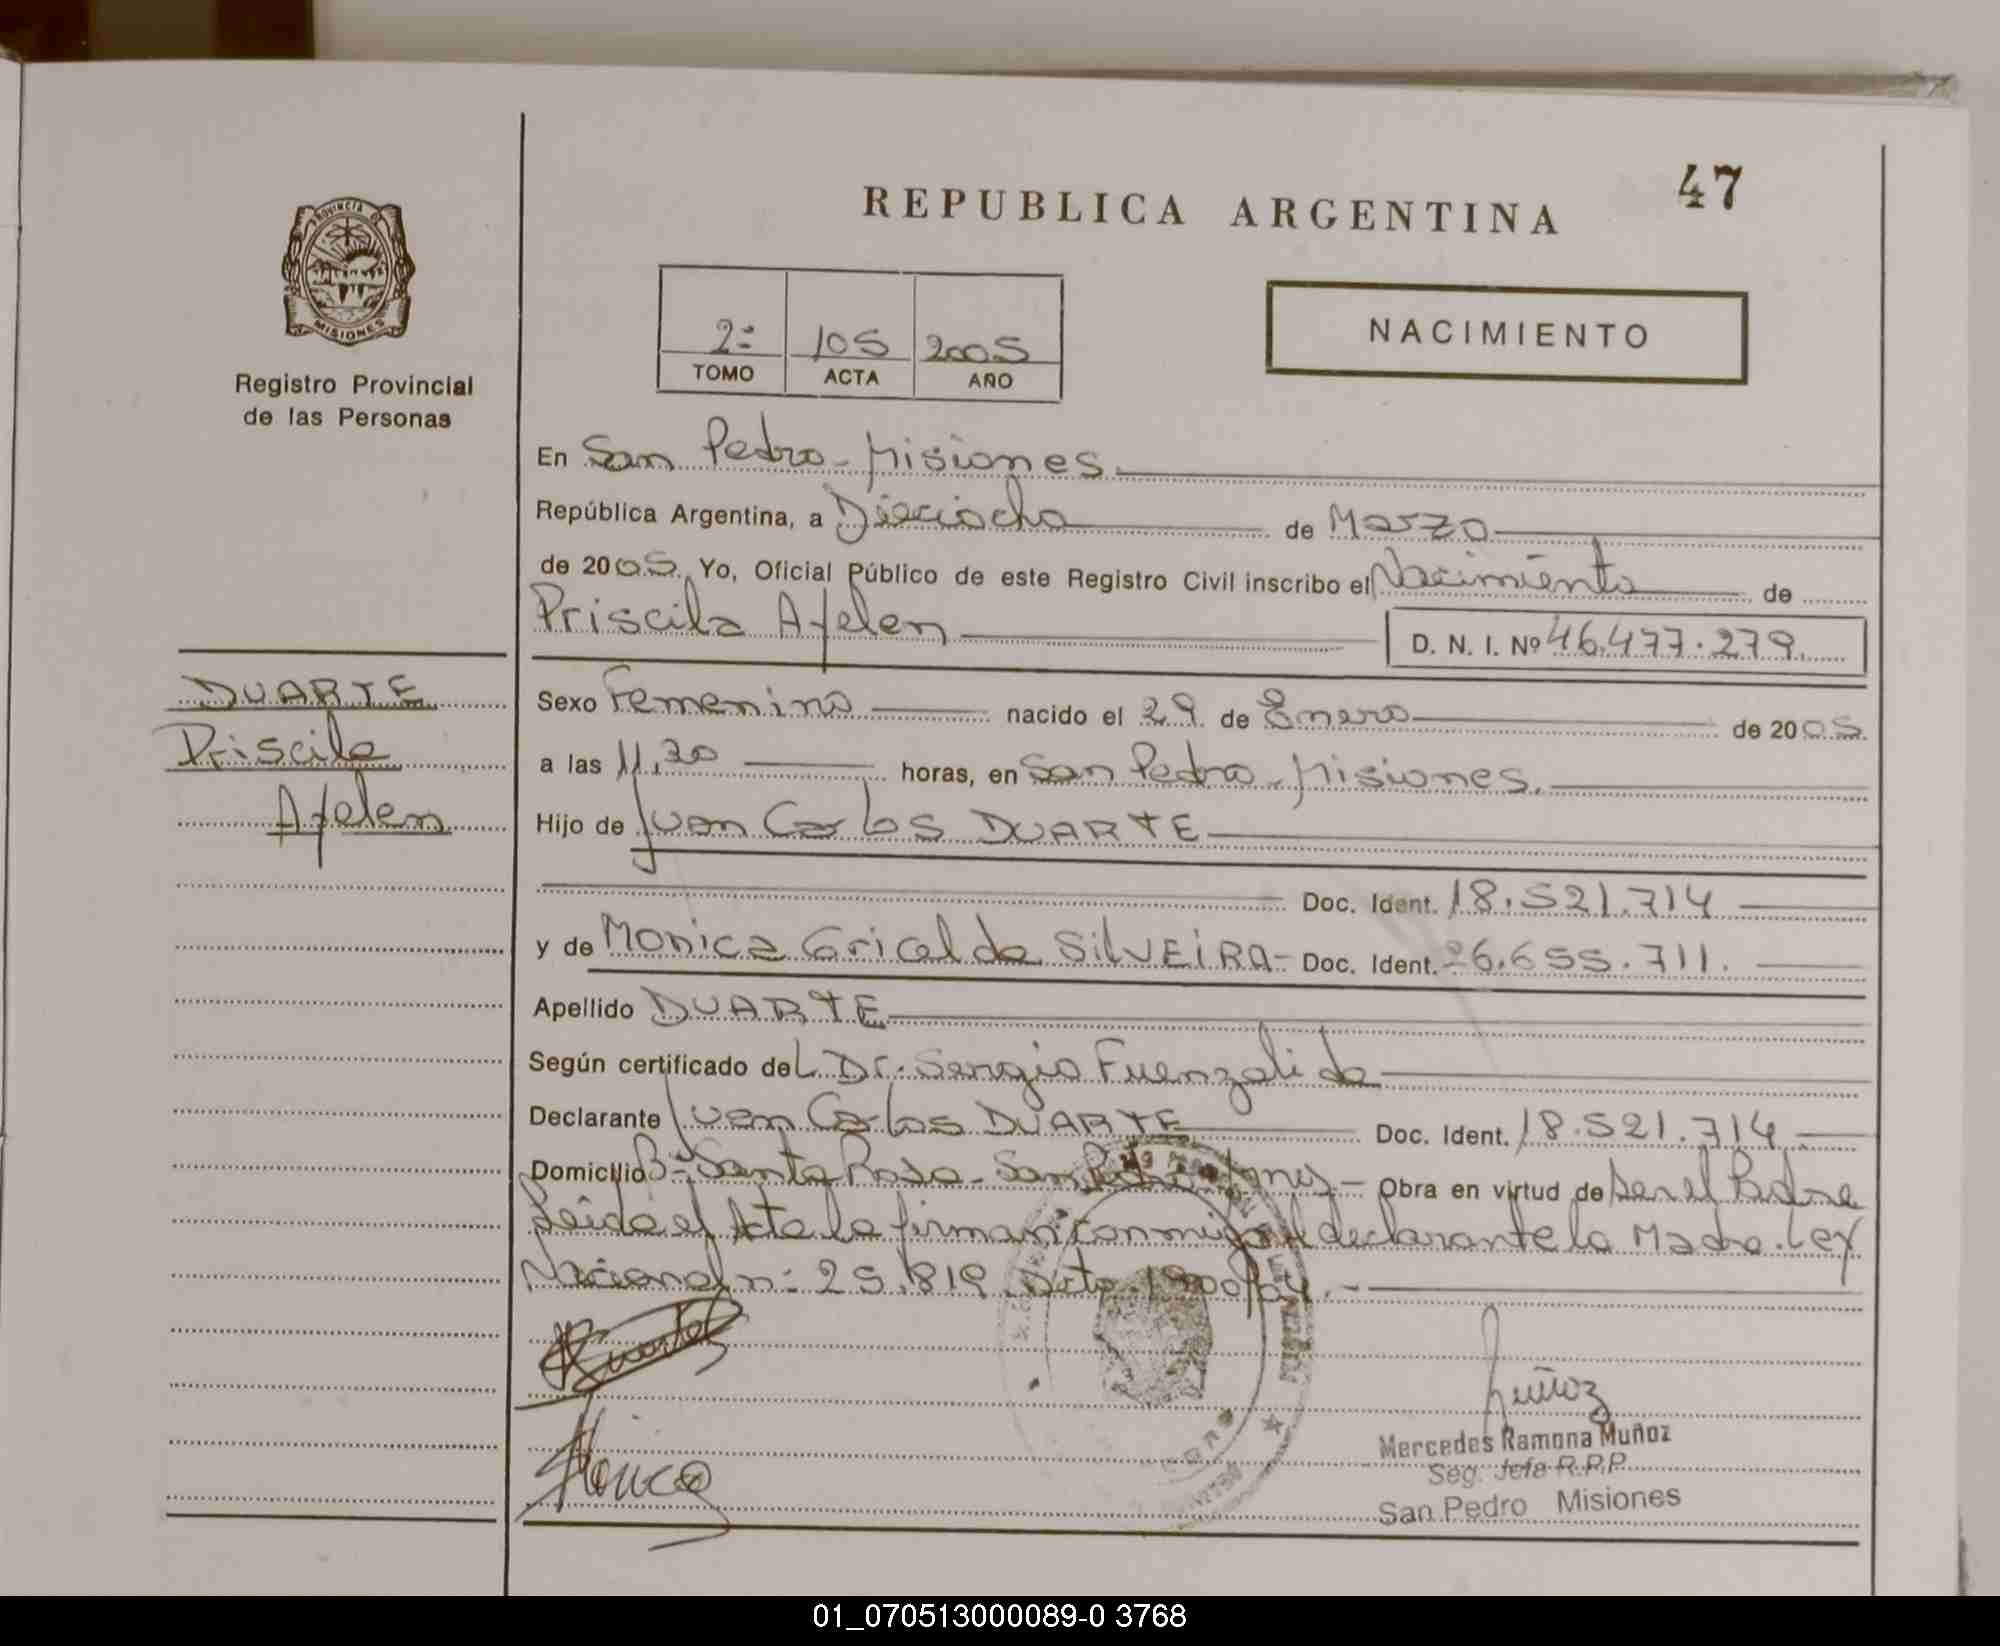 47
REPUBLICA ARGENTINA
PROVINCIA DE
MISIONES
Registro Provincial
de las Personas
2º 105 2005
TOMO ACTA AÑO
NACIMIENTO
En San Pedro - Misiones.
República Argentina, a Dieciocho de Marzo
de 2005. Yo, Oficial Público de este Registro Civil inscribo el Nacimiento de
Priscila Ayelen D. N. I. Nº 46.477.279.
DUARTE
Priscila
Ayelen
Sexo Femenino nacido el 29 de Enero de 2005.
a las 11,30 horas, en San Pedro - Misiones.
Hijo de Juan Carlos DUARTE
Doc. Ident. 18.521.714
y de Monica Gricelda SILVEIRA - Doc. Ident. 26.655.711.
Apellido DUARTE
Según certificado del Dr. Sergio Fuenzalida
Declarante Juan Carlos DUARTE Doc. Ident. 18.521.714
Domicilio Bº Santa Rosa - San Pedro - Mnes - Obra en virtud de ser el Padre
Leida el Acta la firman conmigo el declarante la Madre. Ley
Nacional nº 25.819 Dcto. 1900/04. -
Duarte
Muñoz
Monica
Mercedes Ramona Muñoz
Seg. Jefa R.P.P
San Pedro Misiones
01_070513000089-0 3768